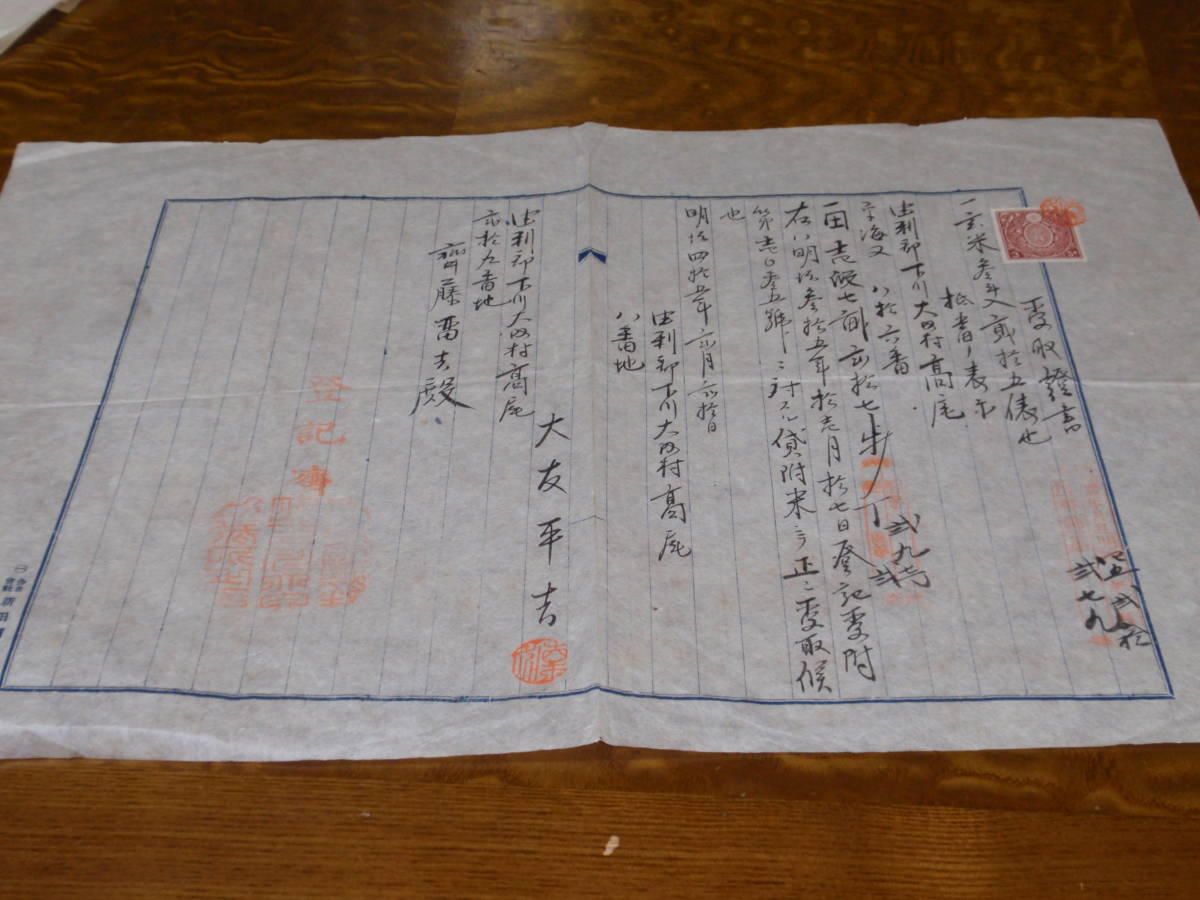 受取證書
一玄米叁斗入貳拾五俵也
抵當ノ表示
由利郡下川大内村高尾
字海又 八拾六番
一田壱段七畝弐拾七歩
右ハ明治叁拾五年拾壱月拾七日登記受附
第壱〇叁五號ニ対スル貸附米ヲ正ニ受取候
也
明治四拾五年弐月弐拾日
由利郡下川大内村高尾
八番地
大友平吉
由利郡下川大内村高尾
弐拾九番地
齊藤雷吉殿
登記濟